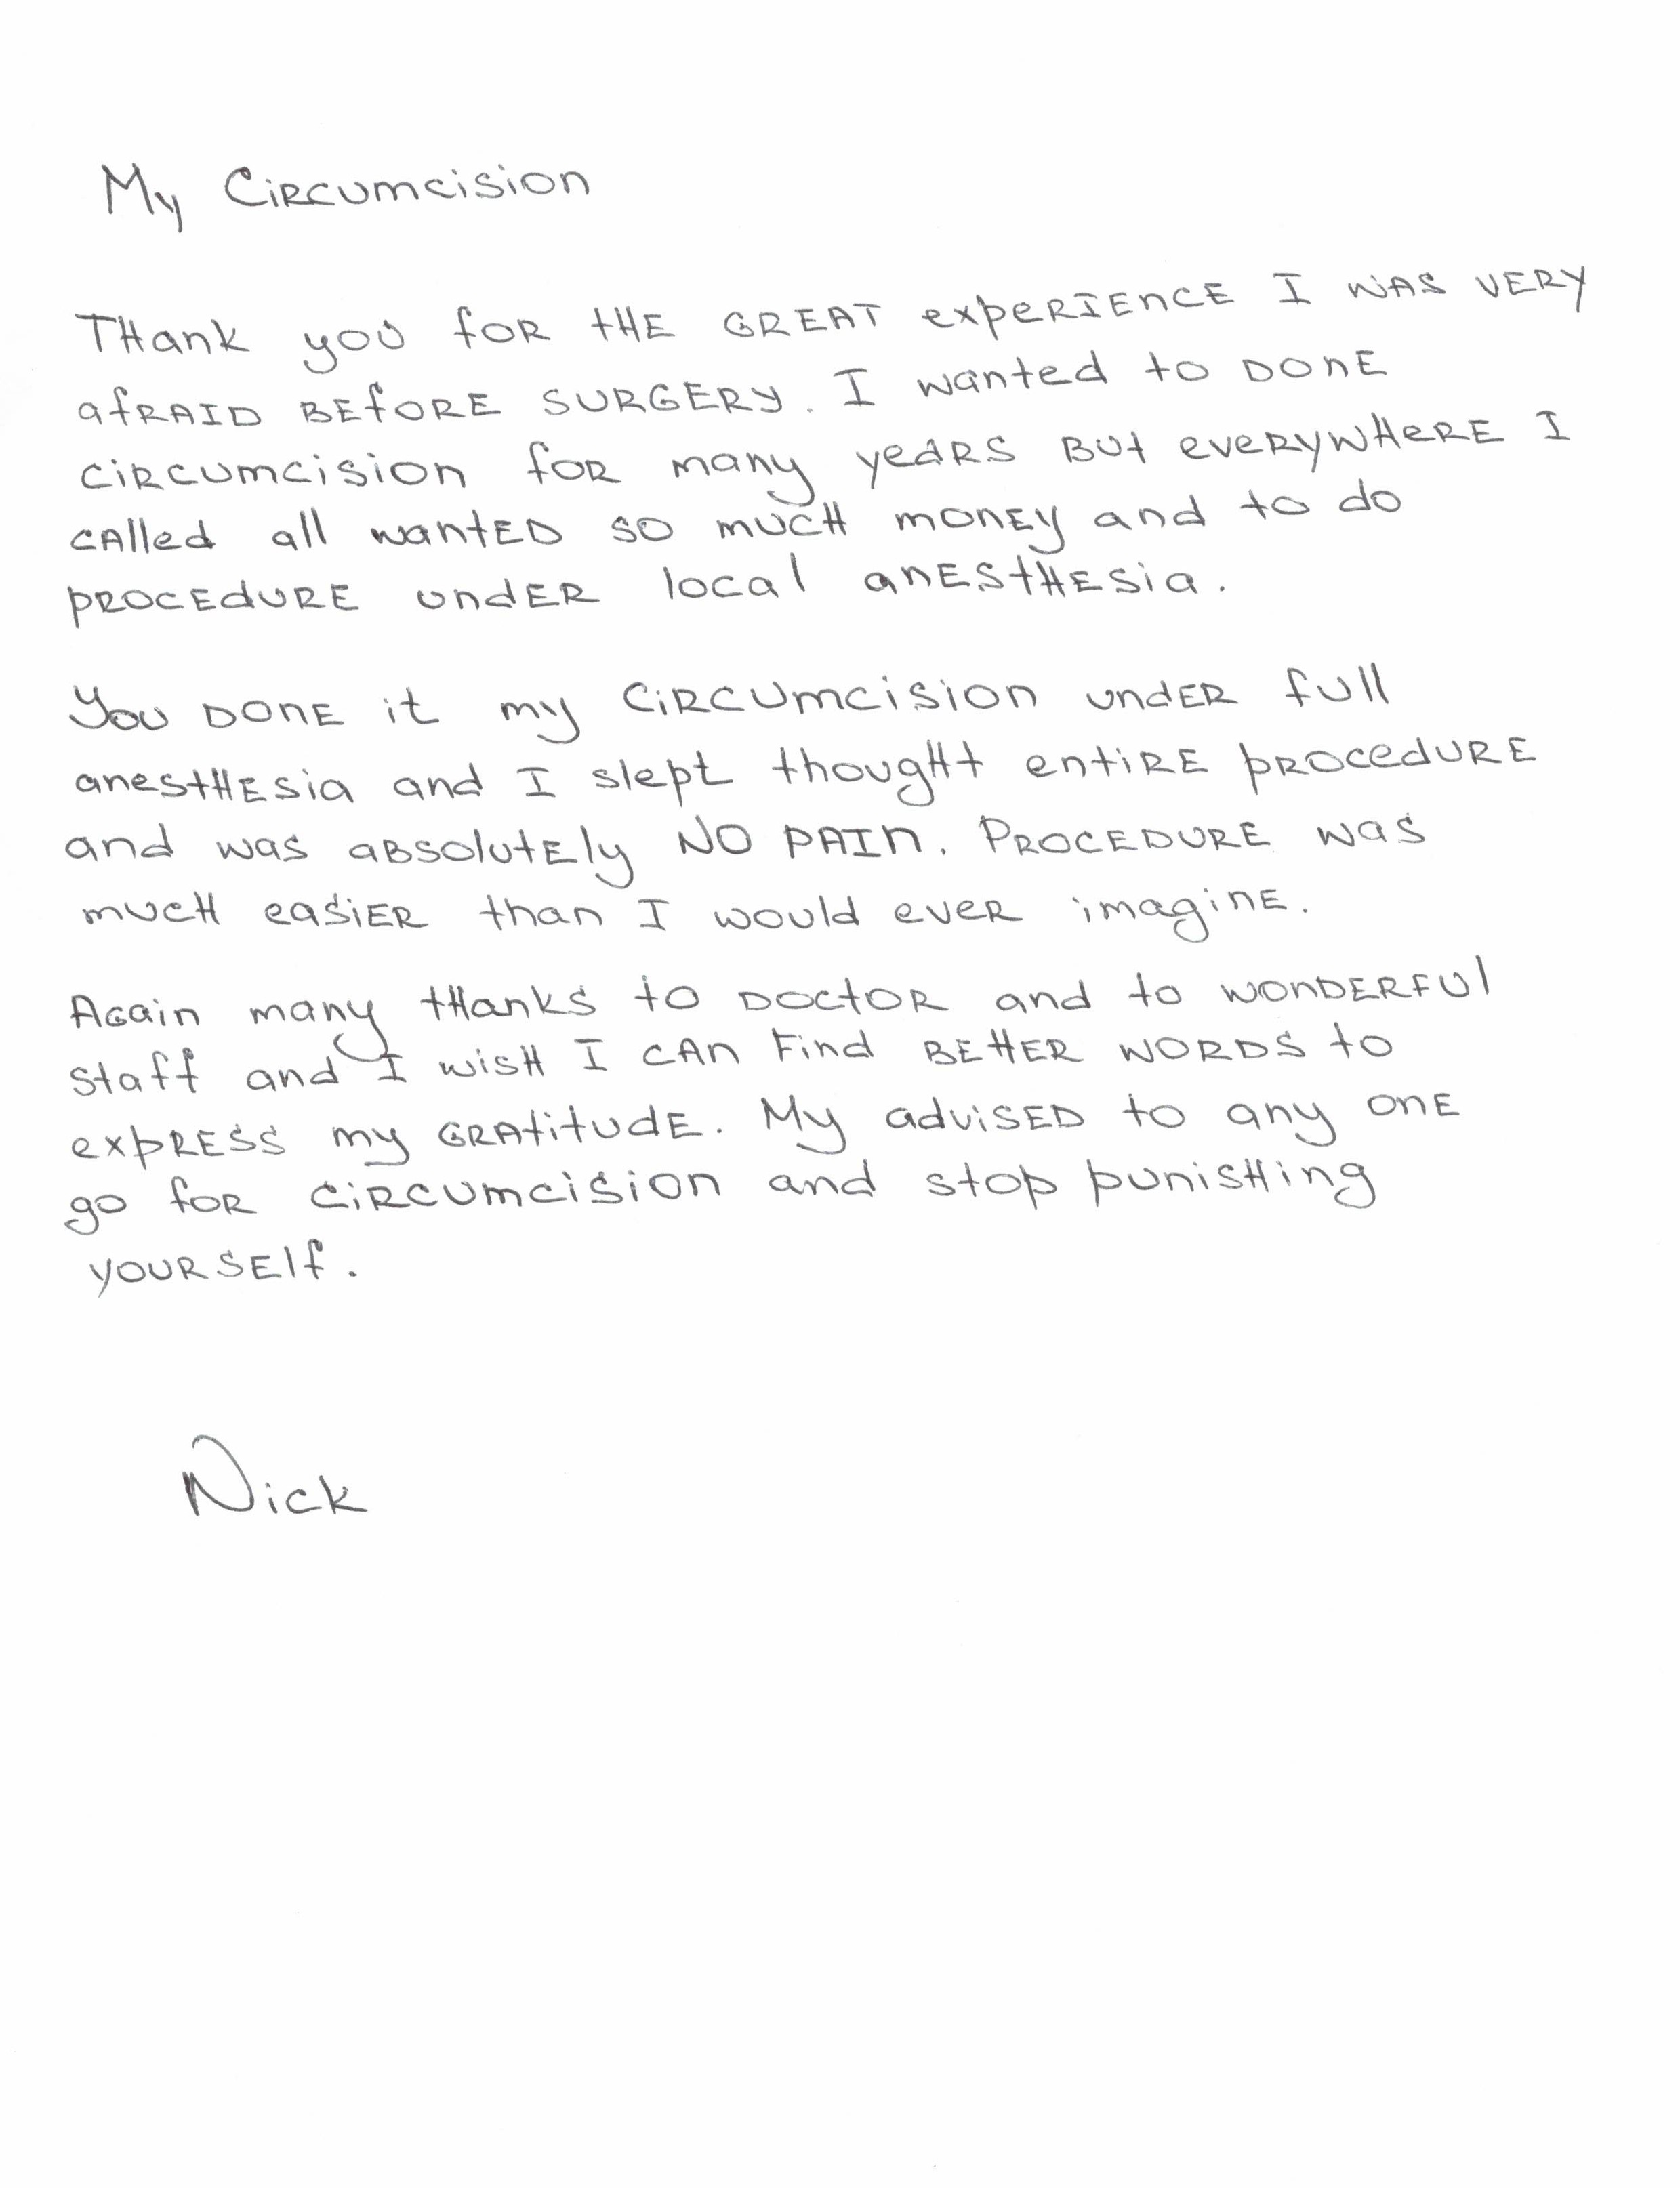 My Circumcision
Thank you for the great experience I was very
afraid before surgery. I wanted to done
circumcision for many years but everywhere I
called all wanted so much money and to do
procedure under local anesthesia.
You done it my circumcision under full
anesthesia and I slept thought entire procedure
and was absolutely NO PAIN. Procedure was
much easier than I would ever imagine.
Again many thanks to doctor and to wonderful
staff and I wish I can find better words to
express my gratitude. My advised to any one
go for circumcision and stop punishing
yourself.
Nick